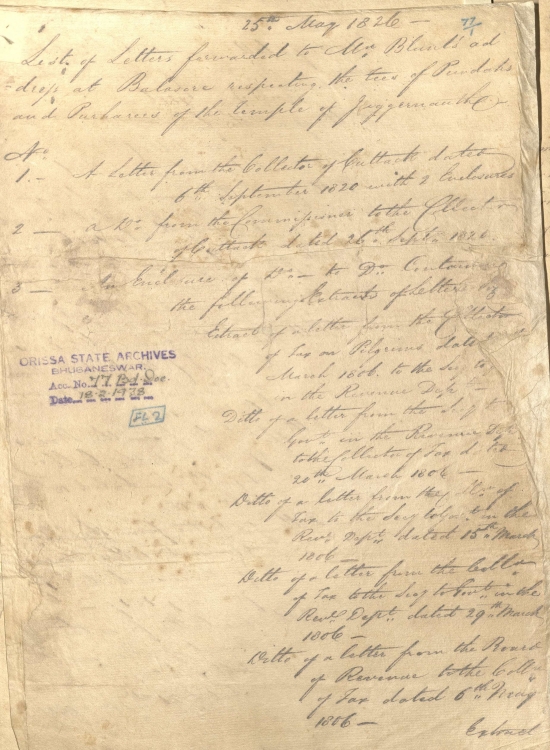 25th May 1826 -
77/1
List of Letters forwarded to Mr Blunt's ad
dress at Balasore respecting the fees of Pundahs
and Purharees of the temple of Juggernauth
No.
1. - A Letter from the Collector of Cuttack dated
6th September 1820 with 2 Enclosures
2 - a Do. from the Commissioner to the Collector
of Cuttack dated 26th Septr. 1820
3 - An Enclosure of Do. - to Do. Containing
the following Extracts of Letters
Extract of a letter from the Collector
of Tax on Pilgrims dated
March 1806. to the Secy to
in the Revenue Dept
Ditto of a letter from the Secy to
Govt. in the Revenue Dept
to the Collector of Tax dated
20th March 1806 -
Ditto of a letter from the Collr. of
Tax to the Secy to Govt. in the
Revr. Dept. dated 15th March
1806
Ditto of a letter from the Collr.
of Tax to the Secy to Govt. in the
Revl. Dept. dated 29th March
1806 -
Ditto of a letter from the Board
of Revenue to the Collr
of Tax dated 6th May
1806 -
Extract
ORISSA STATE ARCHIVES
BHUBANESWAR.
Acc. No. 77 Bd. Doc.
Date 18-2-1978